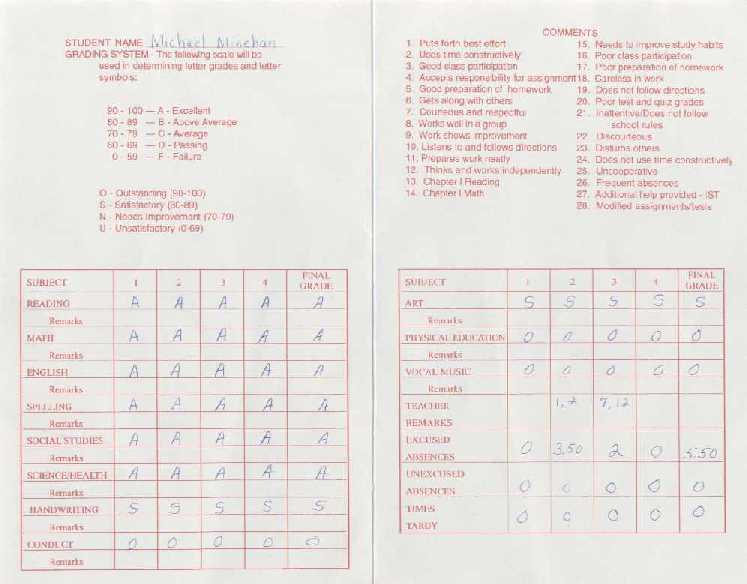 STUDENT NAME Michael Minehan
GRADING SYSTEM - The following scale will be
used in determining letter grades and letter
symbols:
90 - 100 — A - Excellent
80 - 89 — B - Above Average
70 - 79 — C - Average
60 - 69 — D - Passing
0 - 59 — F - Failure
O - Outstanding (90-100)
S - Satisfactory (80-89)
N - Needs Improvement (70-79)
U - Unsatisfactory (0-69)
SUBJECT 1 2 3 4 FINAL GRADE
READING A A A A A
Remarks
MATH A A A A A
Remarks
ENGLISH A A A A A
Remarks
SPELLING A A A A A
Remarks
SOCIAL STUDIES A A A A A
Remarks
SCIENCE/HEALTH A A A A A
Remarks
HANDWRITING S S S S S
Remarks
CONDUCT O O O O O
Remarks
COMMENTS
1. Puts forth best effort
2. Uses time constructively
3. Good class participation
4. Accepts responsibility for assignment
5. Good preparation of homework
6. Gets along with others
7. Courteous and respectful
8. Works well in a group
9. Work shows improvement
10. Listens to and follows directions
11. Prepares work neatly
12. Thinks and works independently
13. Chapter I Reading
14. Chapter I Math
15. Needs to improve study habits
16. Poor class participation
17. Poor preparation of homework
18. Careless in work
19. Does not follow directions
20. Poor test and quiz grades
21. Inattentive/Does not follow
school rules
22. Discourteous
23. Disturbs others
24. Does not use time constructively
25. Uncooperative
26. Frequent absences
27. Additional help provided - IST
28. Modified assignments/tests
SUBJECT 1 2 3 4 FINAL GRADE
ART S S S S S
Remarks
PHYSICAL EDUCATION O O O O O
Remarks
VOCAL MUSIC O O O O O
Remarks
TEACHER REMARKS 1, 7 7, 12
EXCUSED ABSENCES 0 3.50 2 0 5.50
UNEXCUSED ABSENCES 0 0 0 0 0
TIMES TARDY 0 0 0 0 0